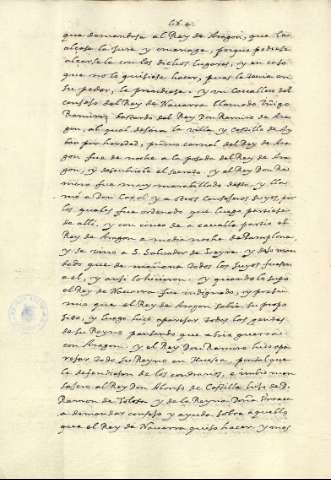 que demandase al Rey de Aragon, que le
alçase la jura y omenage, porque pudiese
alçarse con los dichos lugares, y en caso
que no lo quisiese hacer, pues le tenia en
su poder, le prendiese. y un Cavallero del
consejo del Rey de Navarra llamado Iñigo
Ramirez bastardo del Rey Don Ramiro de Ara
gon, al qual el villa, y Castillo de
por heredad, primo cornal del Rey de Ara
gon fue de noche a la posada del Rey de Ara
gon, y descubriole el secreto. y el Rey Don Ra
miro fue muy maravillado desto, y lla
mó a Don Caxal y a otros consejeros suyos, por
los quales fue ordenado que luego partiese
de alli, y con cinco de a cavallo partio el
Rey de Aragon a media noche de Pamplona
y se vino a S. Salvador de Leyre, y dejo man
dado que de mañana todos los suyos fuesen
a el, y ansi lo hicieron. y quando lo supo
el Rey de Navarra fue indignado, y
mas que el Rey de Aragon sabia su propo
sito, y luego hizo aparejar todas las gentes
de su Reyno pensando que abria guerra
con Aragon. y el Rey Don Ramiro hizo apa
rejar todo su Reyno en Huesca, para que
le defendiesen de los contrarios, e imbio men
sajero al Rey Don Alonso de Castilla hijo de D.
Ramon de Tolosa, y de la Reyna Doña Urraca
a demandar consejo y ayuda sobre aquello
que el Rey de Navarra quiso hacer, y mas